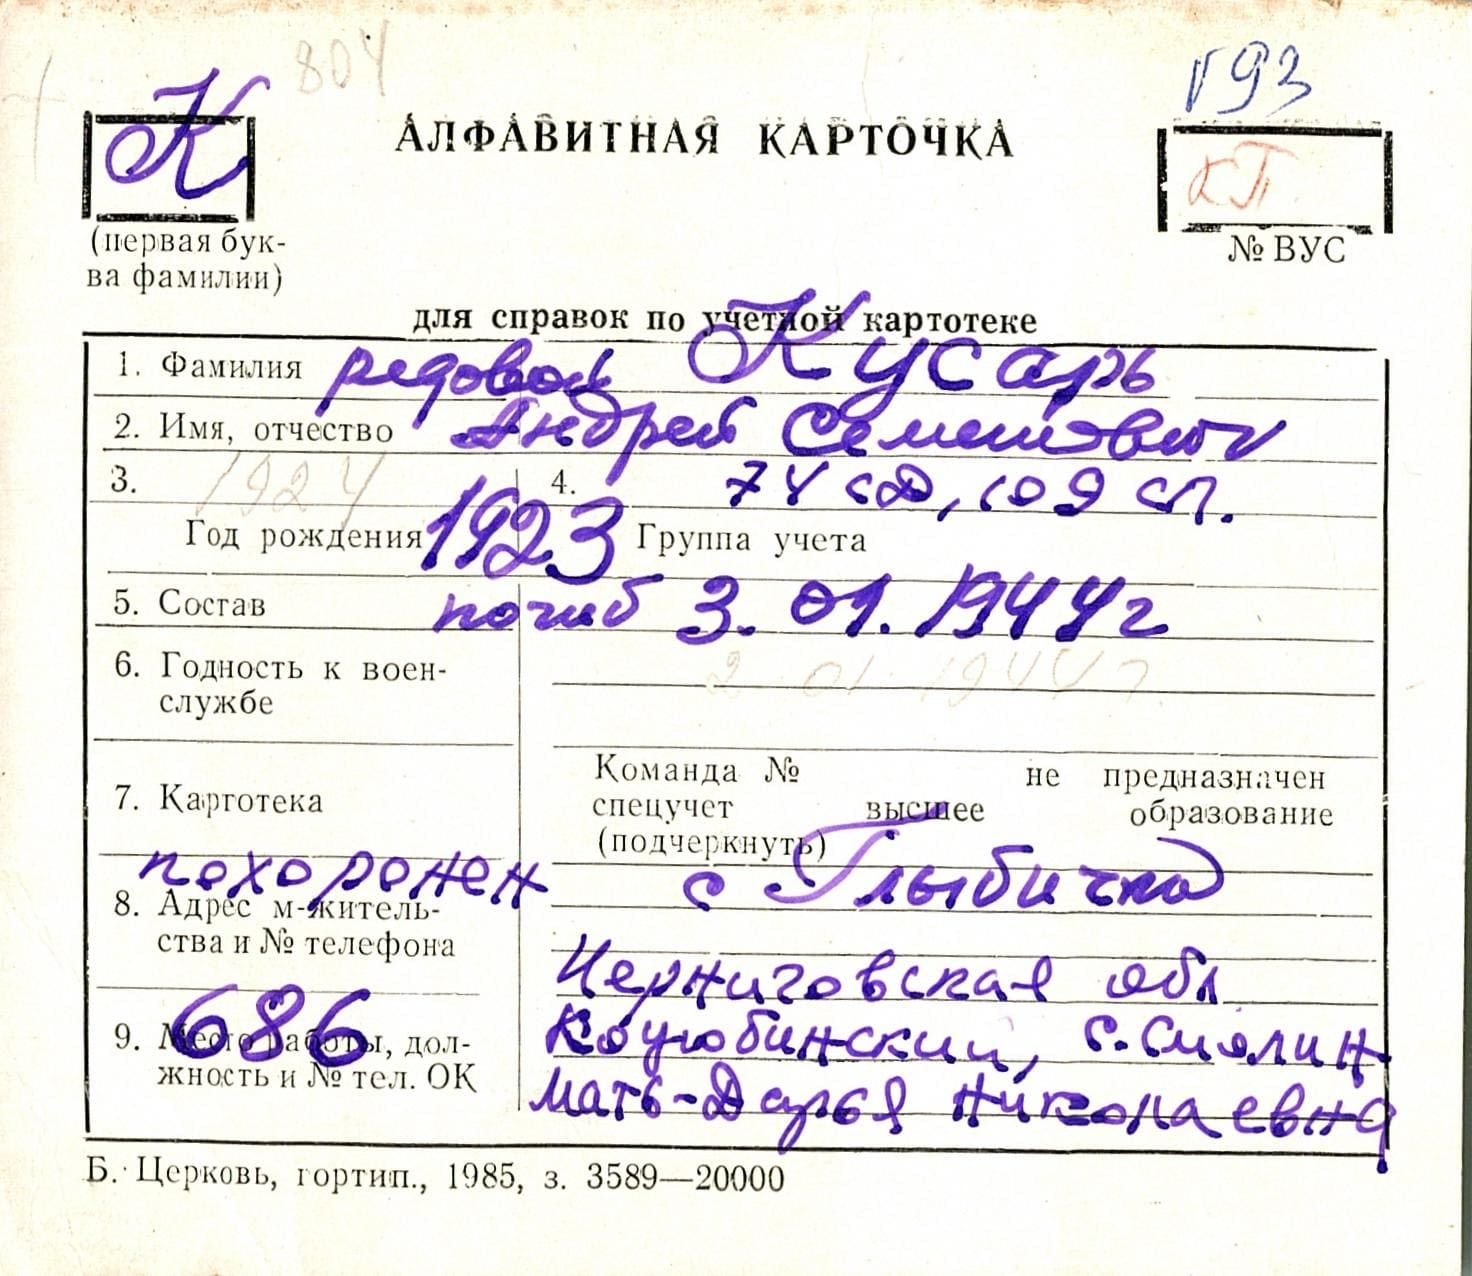 804
193
К
АЛФАВИТНАЯ КАРТОЧКА
кП
(первая бук-
ва фамилии)
№ ВУС
для справок по учетной картотеке
1. Фамилия рядовой Кусарь
2. Имя, отчество Андрей Семенович
3. 1924 4. 74 сд, 109 сп.
Год рождения 1923 Группа учета
5. Состав погиб 3.01.1944г
6. Годность к воен-
службе
2 01 1944г
7. Картотека
Команда № не предназначен
спецучет высшее образование
(подчеркнуть)
похоронен с Глыбичка
8. Адрес м-житель-
ства и № телефона
Черниговская обл
686 Коцюбинский, с. Смолин
9. Место работы, дол-
жность и № тел. ОК
мать-Дарья Николаевна
Б. Церковь, гортип., 1985, з. 3589—20000